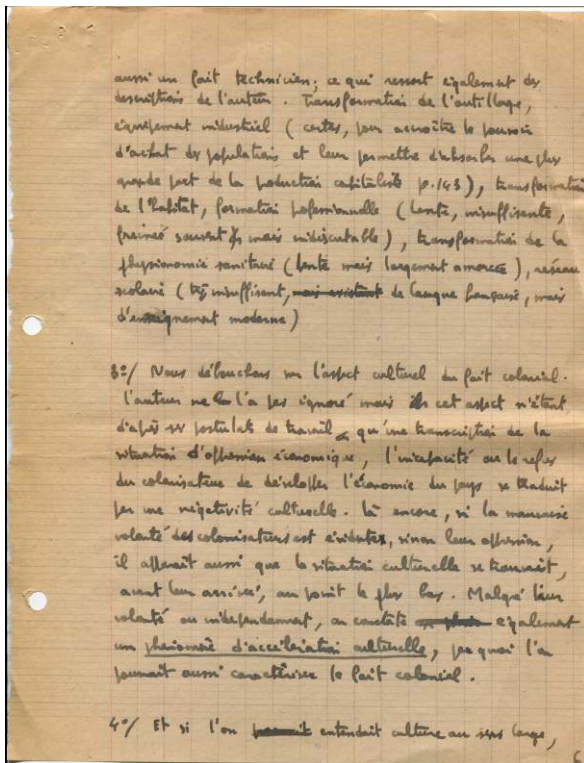 aussi un fait technicien; ce qui ressort également des
descriptions de l'auteur. Transformation de l'outillage,
équipement industriel (certes, pour accroître le pouvoir
d'achat des populations et leur permettre d'absorber une plus
grande part de la production capitaliste p.143), transformation
de l'habitat, formation professionnelle (lente, insuffisante,
freinée souvent mais indiscutable), transformation de la
physionomie sanitaire (lente mais largement amorcée), réseau
scolaire (très insuffisant, mais existant de langue française, mais
d'enseignement moderne)
3°/ Nous débouchons sur l'aspect culturel du fait colonial.
L'auteur ne l'a pas ignoré mais cet aspect n'étant
d'après ses postulats de travail qu'une transcription de la
situation d'oppression économique, l'incapacité ou le refus
du colonisateur de développer l'économie du pays se traduit
par une négativité culturelle. Là encore, si la mauvaise
volonté des colonisateurs est évidente, sinon leur oppression,
il apparaît aussi que la situation culturelle se trouvait,
avant leur arrivée, au point le plus bas. Malgré leur
volonté ou indépendamment, on constate également
un phénomène d'accélération culturelle, par quoi l'on
pourrait aussi caractériser le fait colonial.
4°/ Et si l'on entendait culture au sens large,
6